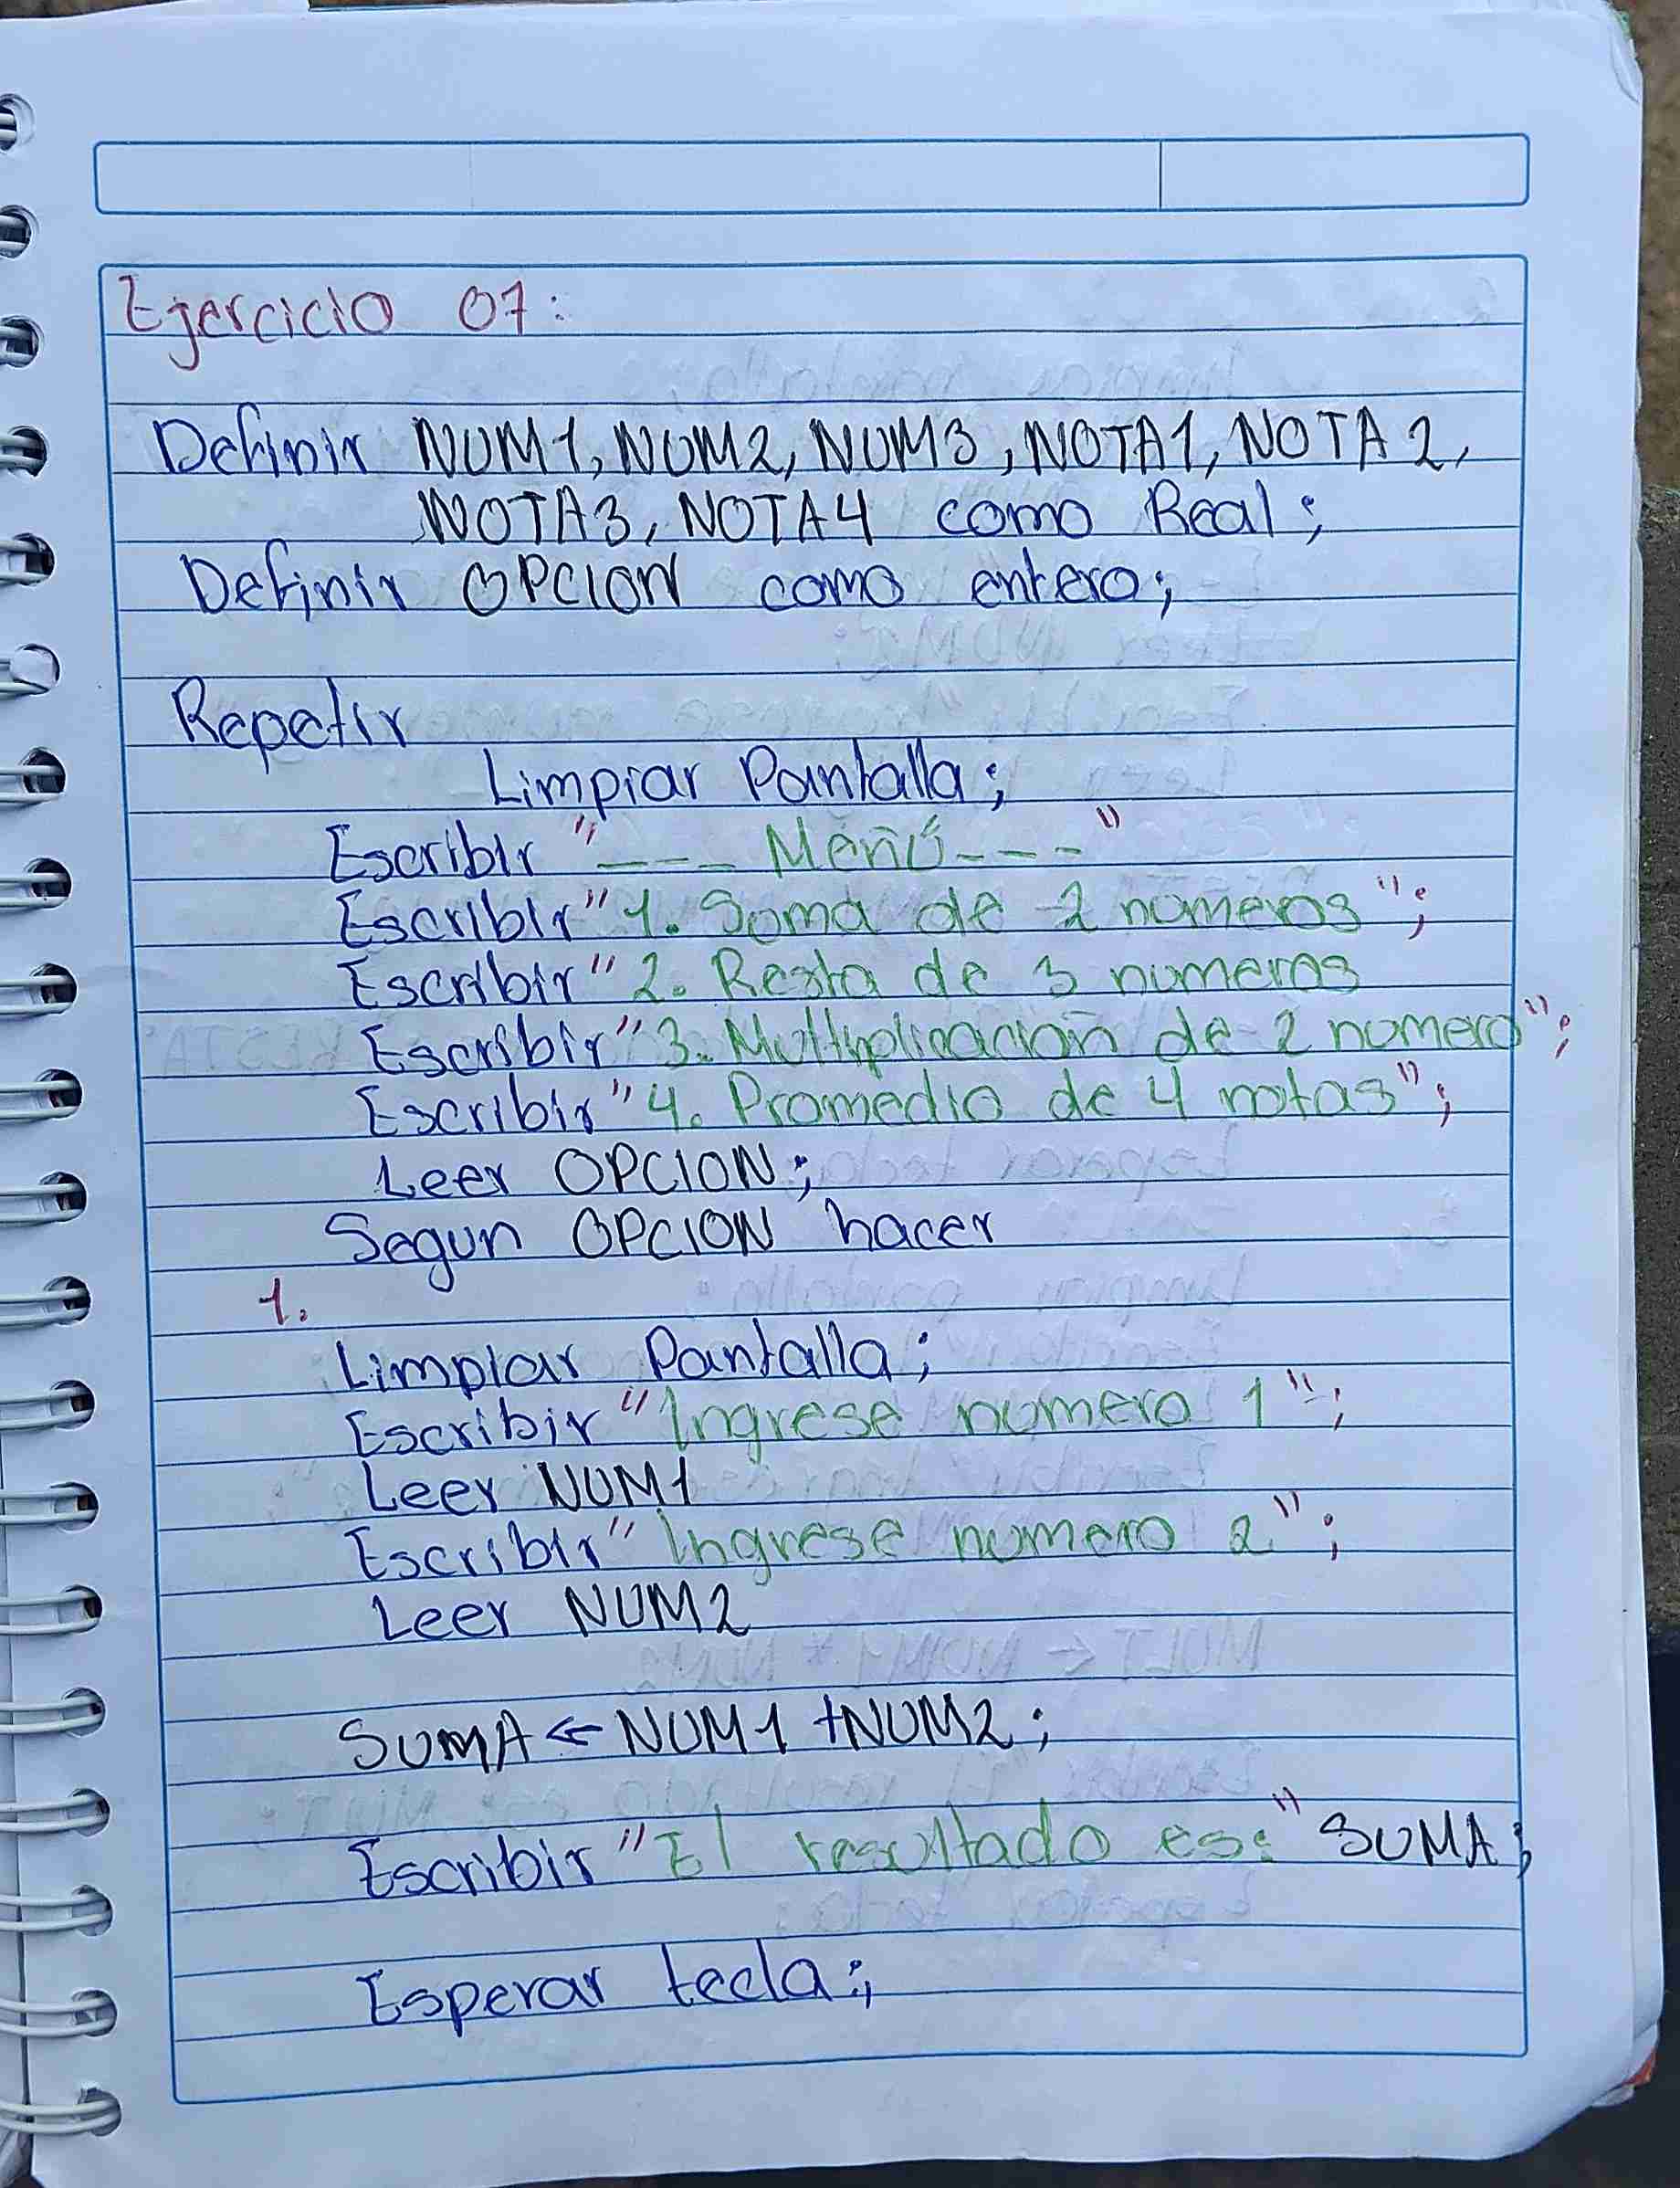 Ejercicio 07:
Definir NUM1, NUM2, NUM3, NOTA1, NOTA 2,
NOTA3, NOTA4 como Real;
Definir OPCION como entero;
Repetir
Limpiar Pantalla;
Escribir "___ Menú---"
Escribir "1. Suma de 2 numeros";
Escribir "2. Resta de 3 numeros
Escribir "3. Multiplicación de 2 numero";
Escribir "4. Promedio de 4 notas";
Leer OPCION;
Segun OPCION hacer
1.
Limpiar Pantalla;
Escribir "Ingrese numero 1";
Leer NUM1
Escribir "Ingrese numero 2";
Leer NUM2
SUMA ← NUM1 +NUM2;
Escribir "El resultado es:" SUMA;
Esperar tecla;